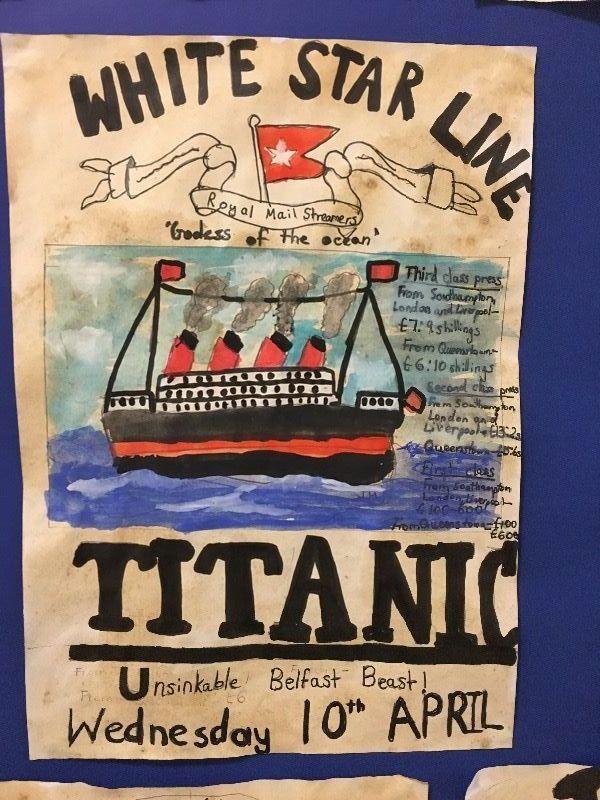 WHITE STAR LINE
Royal Mail Streamers
"Godess of the ocean"
Third class press
From Southampton,
London and Liverpool-
£7:9 shillings
From Queenstown-
£6:10 shillings
Second class press
From Southampton
London and
Liverpool-
Queenstown-
First class
From Southampton
London, Liverpool-
£100-600
From Queenstown-£100
£600
TITANIC
Unsinkable Belfast Beast!
Wednesday 10th APRIL